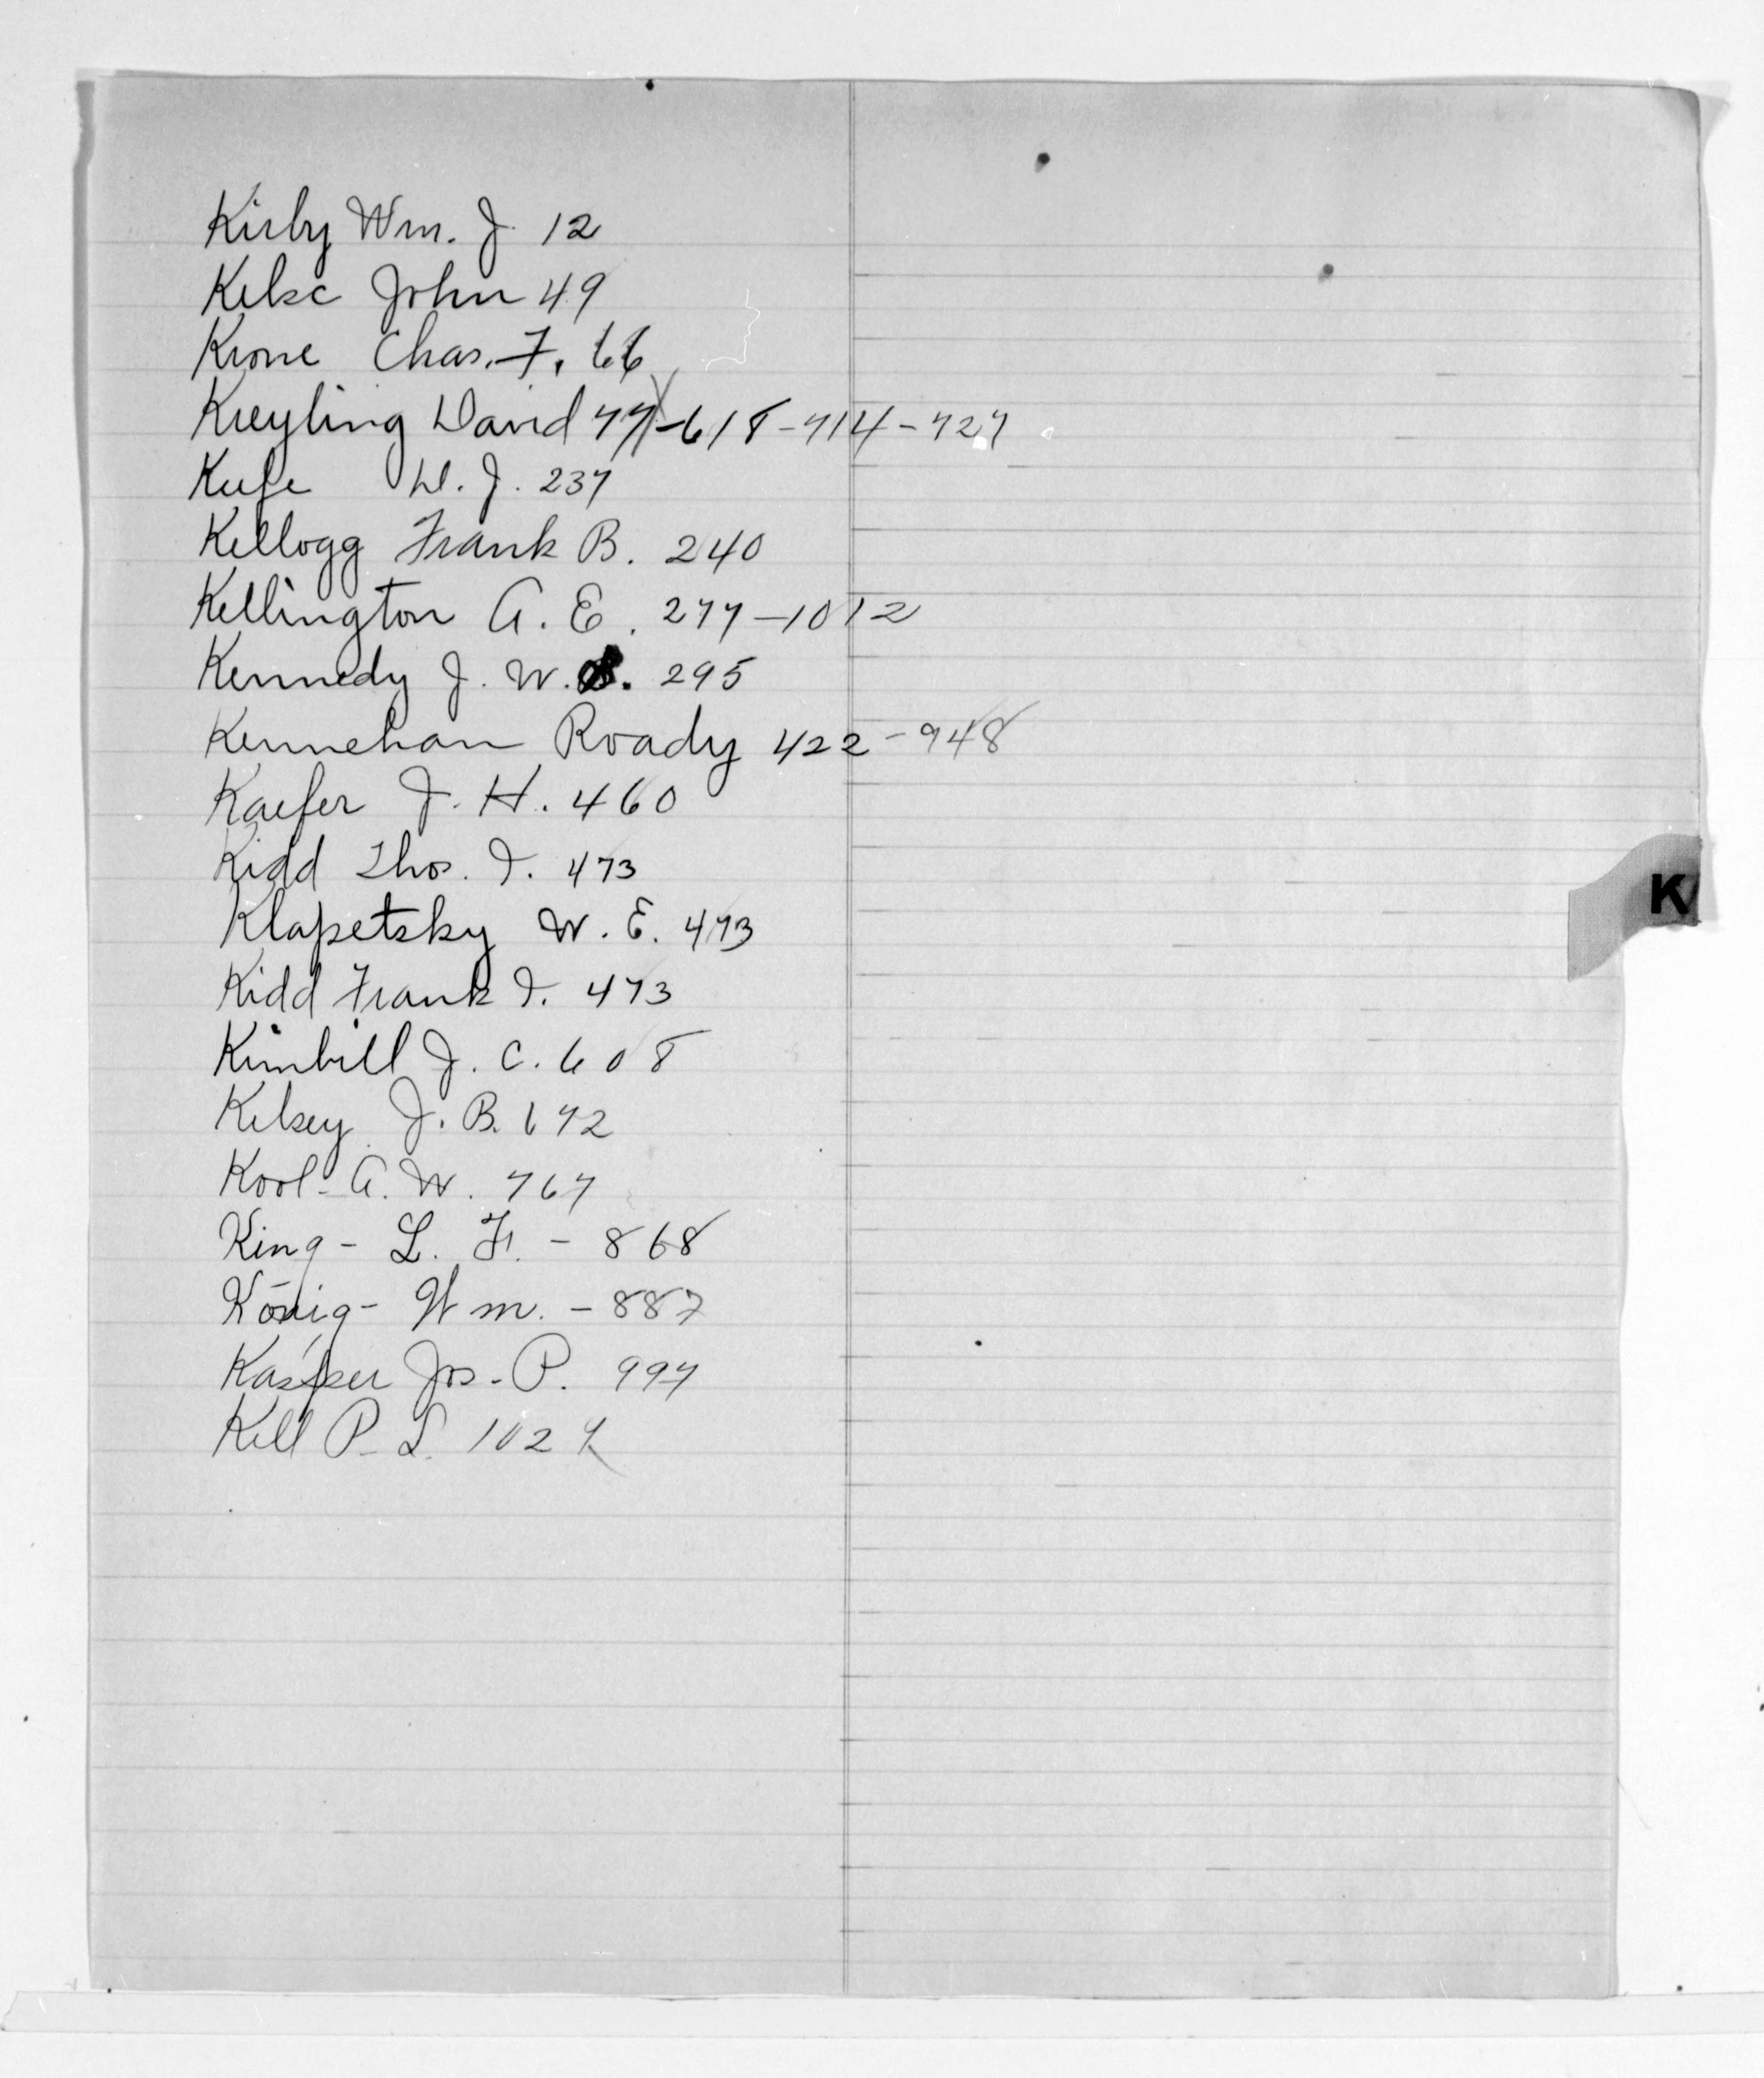 Kirby Wm. J. 12
Kelsc John 49
Krone Chas. F. 66
Kreyling David 77-618-714-727
Keefe D. J. 237
Kellogg Frank B. 240
Kellington A. E. 277-1012
Kennedy J. W. 295
Kennehan Roady 422-948
Kaefer J. H. 460
Kidd Thos. I. 473
Klapetsky W. E. 473
Kidd Frank I. 473
Kimbill J. C. 608
Kelsey J. B. 672
Kool - A. W. 767
King - L. F. - 868
König - Wm. - 887
Kasper Jos. P. 997
Kell P. L. 1027
K